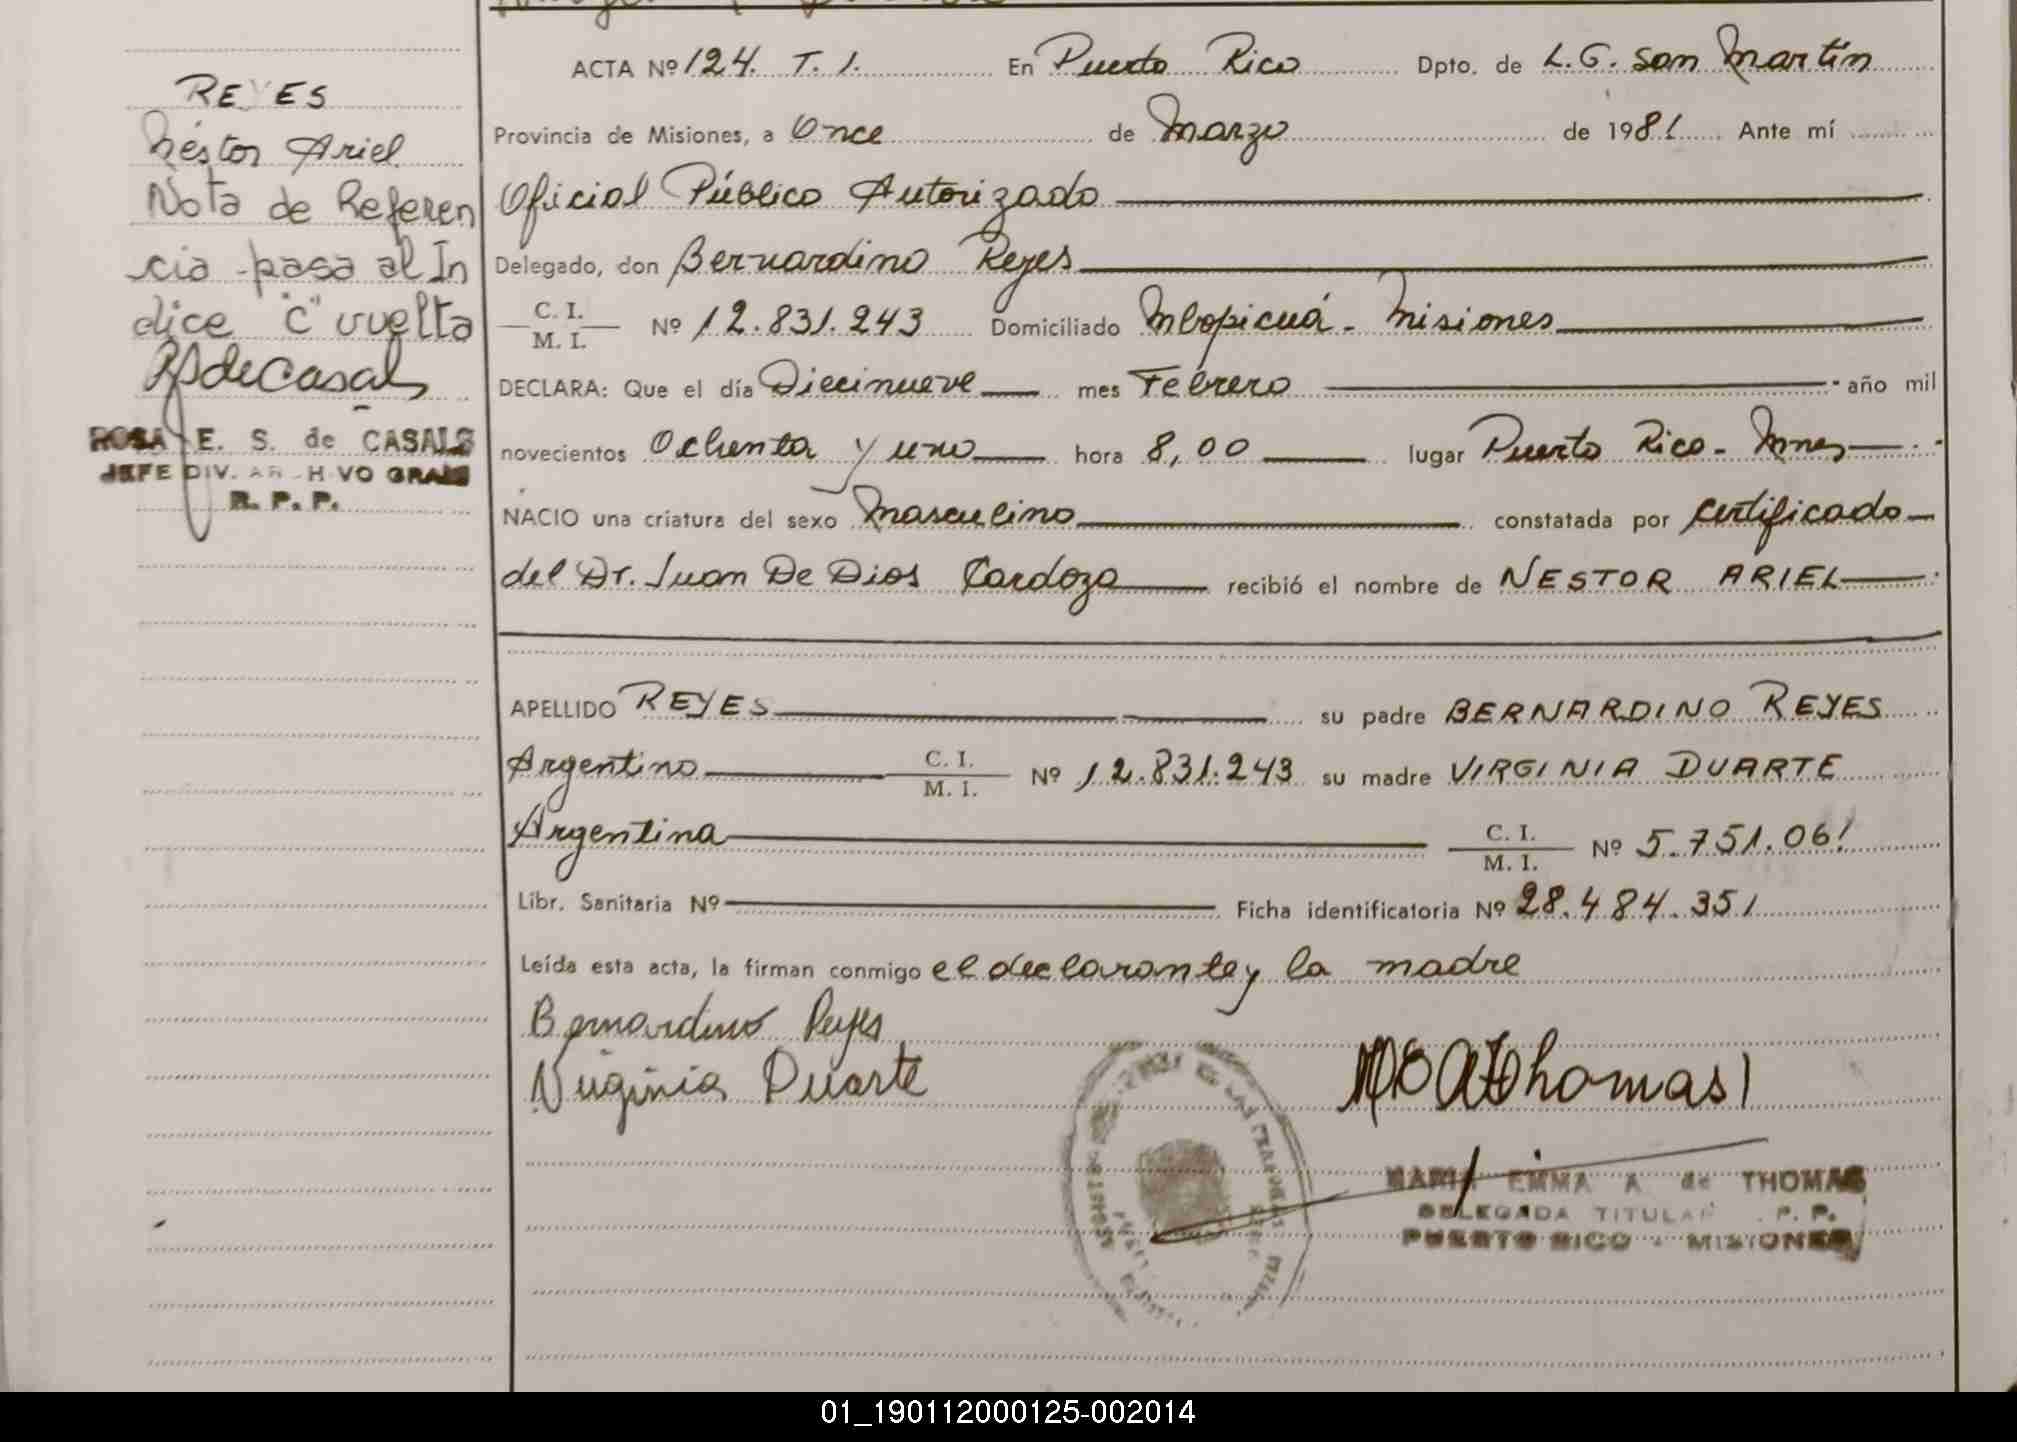 REYES
Néstor Ariel
Nota de Referen
cia pasa al In
dice "C" vuelta
RSdeCasals
ROSA E. S. de CASALS
JEFE DIV. ARCHIVO GRAL
R. P. P.
ACTA Nº 124. T. 1. En Puerto Rico Dpto. de L.G. San Martín
Provincia de Misiones, a Once de Marzo de 1981 Ante mí
Oficial Público Autorizado
Delegado, don Bernardino Reyes
C. I.
M. I.
Nº 12.831.243 Domiciliado Mbopicuá - Misiones
DECLARA: Que el día Diecinueve mes Febrero año mil
novecientos Ochenta y uno hora 8,00 lugar Puerto Rico - Mnes
NACIO una criatura del sexo Masculino constatada por certificado
del Dr. Juan De Dios Cardozo recibió el nombre de NESTOR ARIEL
APELLIDO REYES su padre BERNARDINO REYES
Argentino C. I. M. I. Nº 12.831.243 su madre VIRGINIA DUARTE
Argentina C. I. M. I. Nº 5.751.061
Libr. Sanitaria Nº Ficha identificatoria Nº 28.484.351
Leída esta acta, la firman conmigo el declarante y la madre
Bernardino Reyes
Virginia Duarte
Thomas
MARIA EMMA A de THOMAS
DELEGADA TITULAR P. P.
PUERTO RICO - MISIONES
01_190112000125-002014